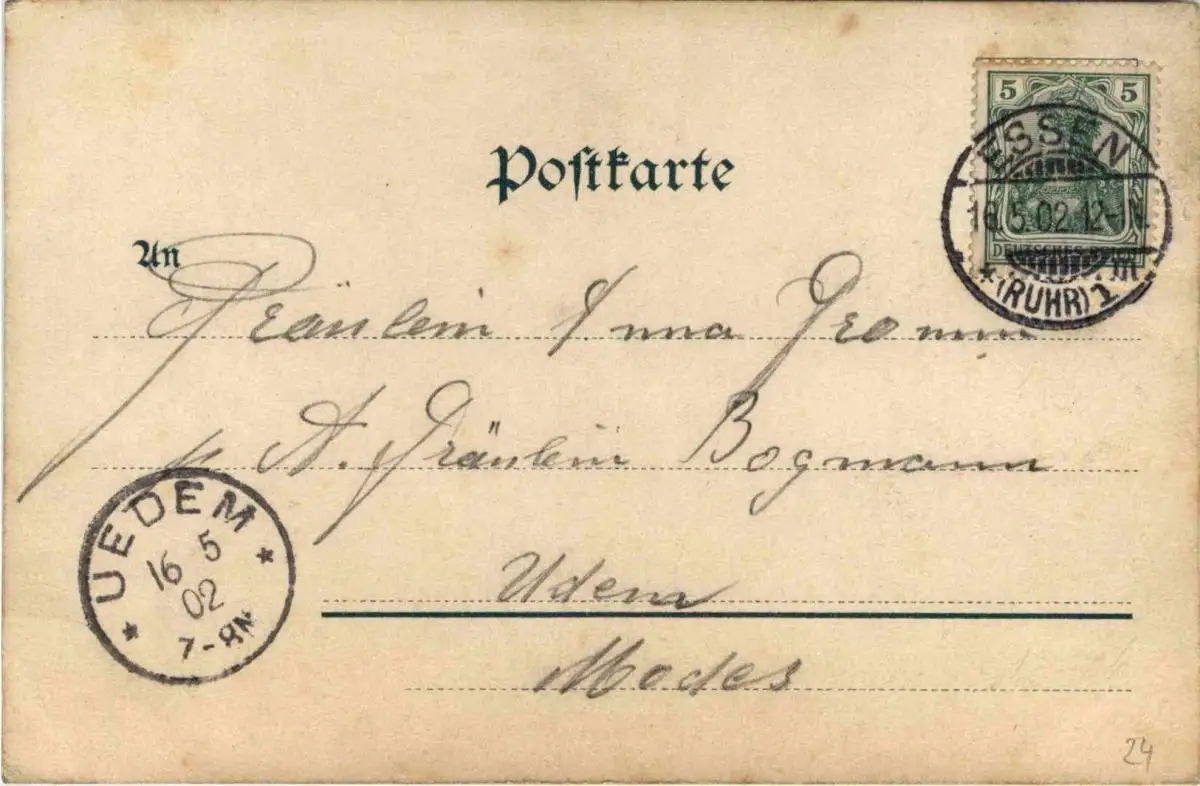 Postkarte
5 5
ESSEN
16.5.02.12-1N.
DEUTSCHES REICH
* (RUHR) 1
An
Fräulein Anna
p. A. Fräulein Bogmann
UEDEM
16 5
02
7-8N
* *
Udem
Modes
24